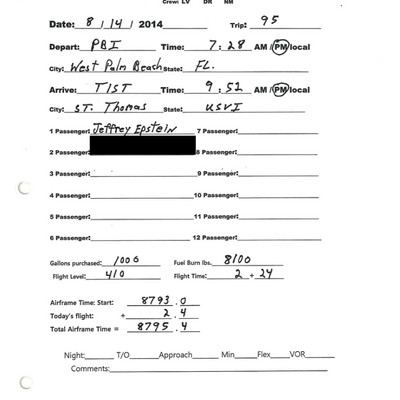 Crew: LV DR NM
Date: 8 / 14 / 2014 Trip: 95
Depart: PBI Time: 7:28 AM / PM local
City: West Palm Beach State: FL.
Arrive: TIST Time: 9:52 AM / PM local
City: ST. Thomas State: USVI
1 Passenger: Jeffrey Epstein 7 Passenger:
2 Passenger: 8 Passenger:
3 Passenger: 9 Passenger:
4 Passenger: 10 Passenger:
5 Passenger: 11 Passenger:
6 Passenger: 12 Passenger:
Gallons purchased: 1006 Fuel Burn lbs. 8100
Flight Level: 410 Flight Time: 2 + 24
Airframe Time: Start: 8793 . 0
Today's flight: + 2 . 4
Total Airframe Time = 8795 . 4
Night: T/O Approach Min Flex VOR
Comments: